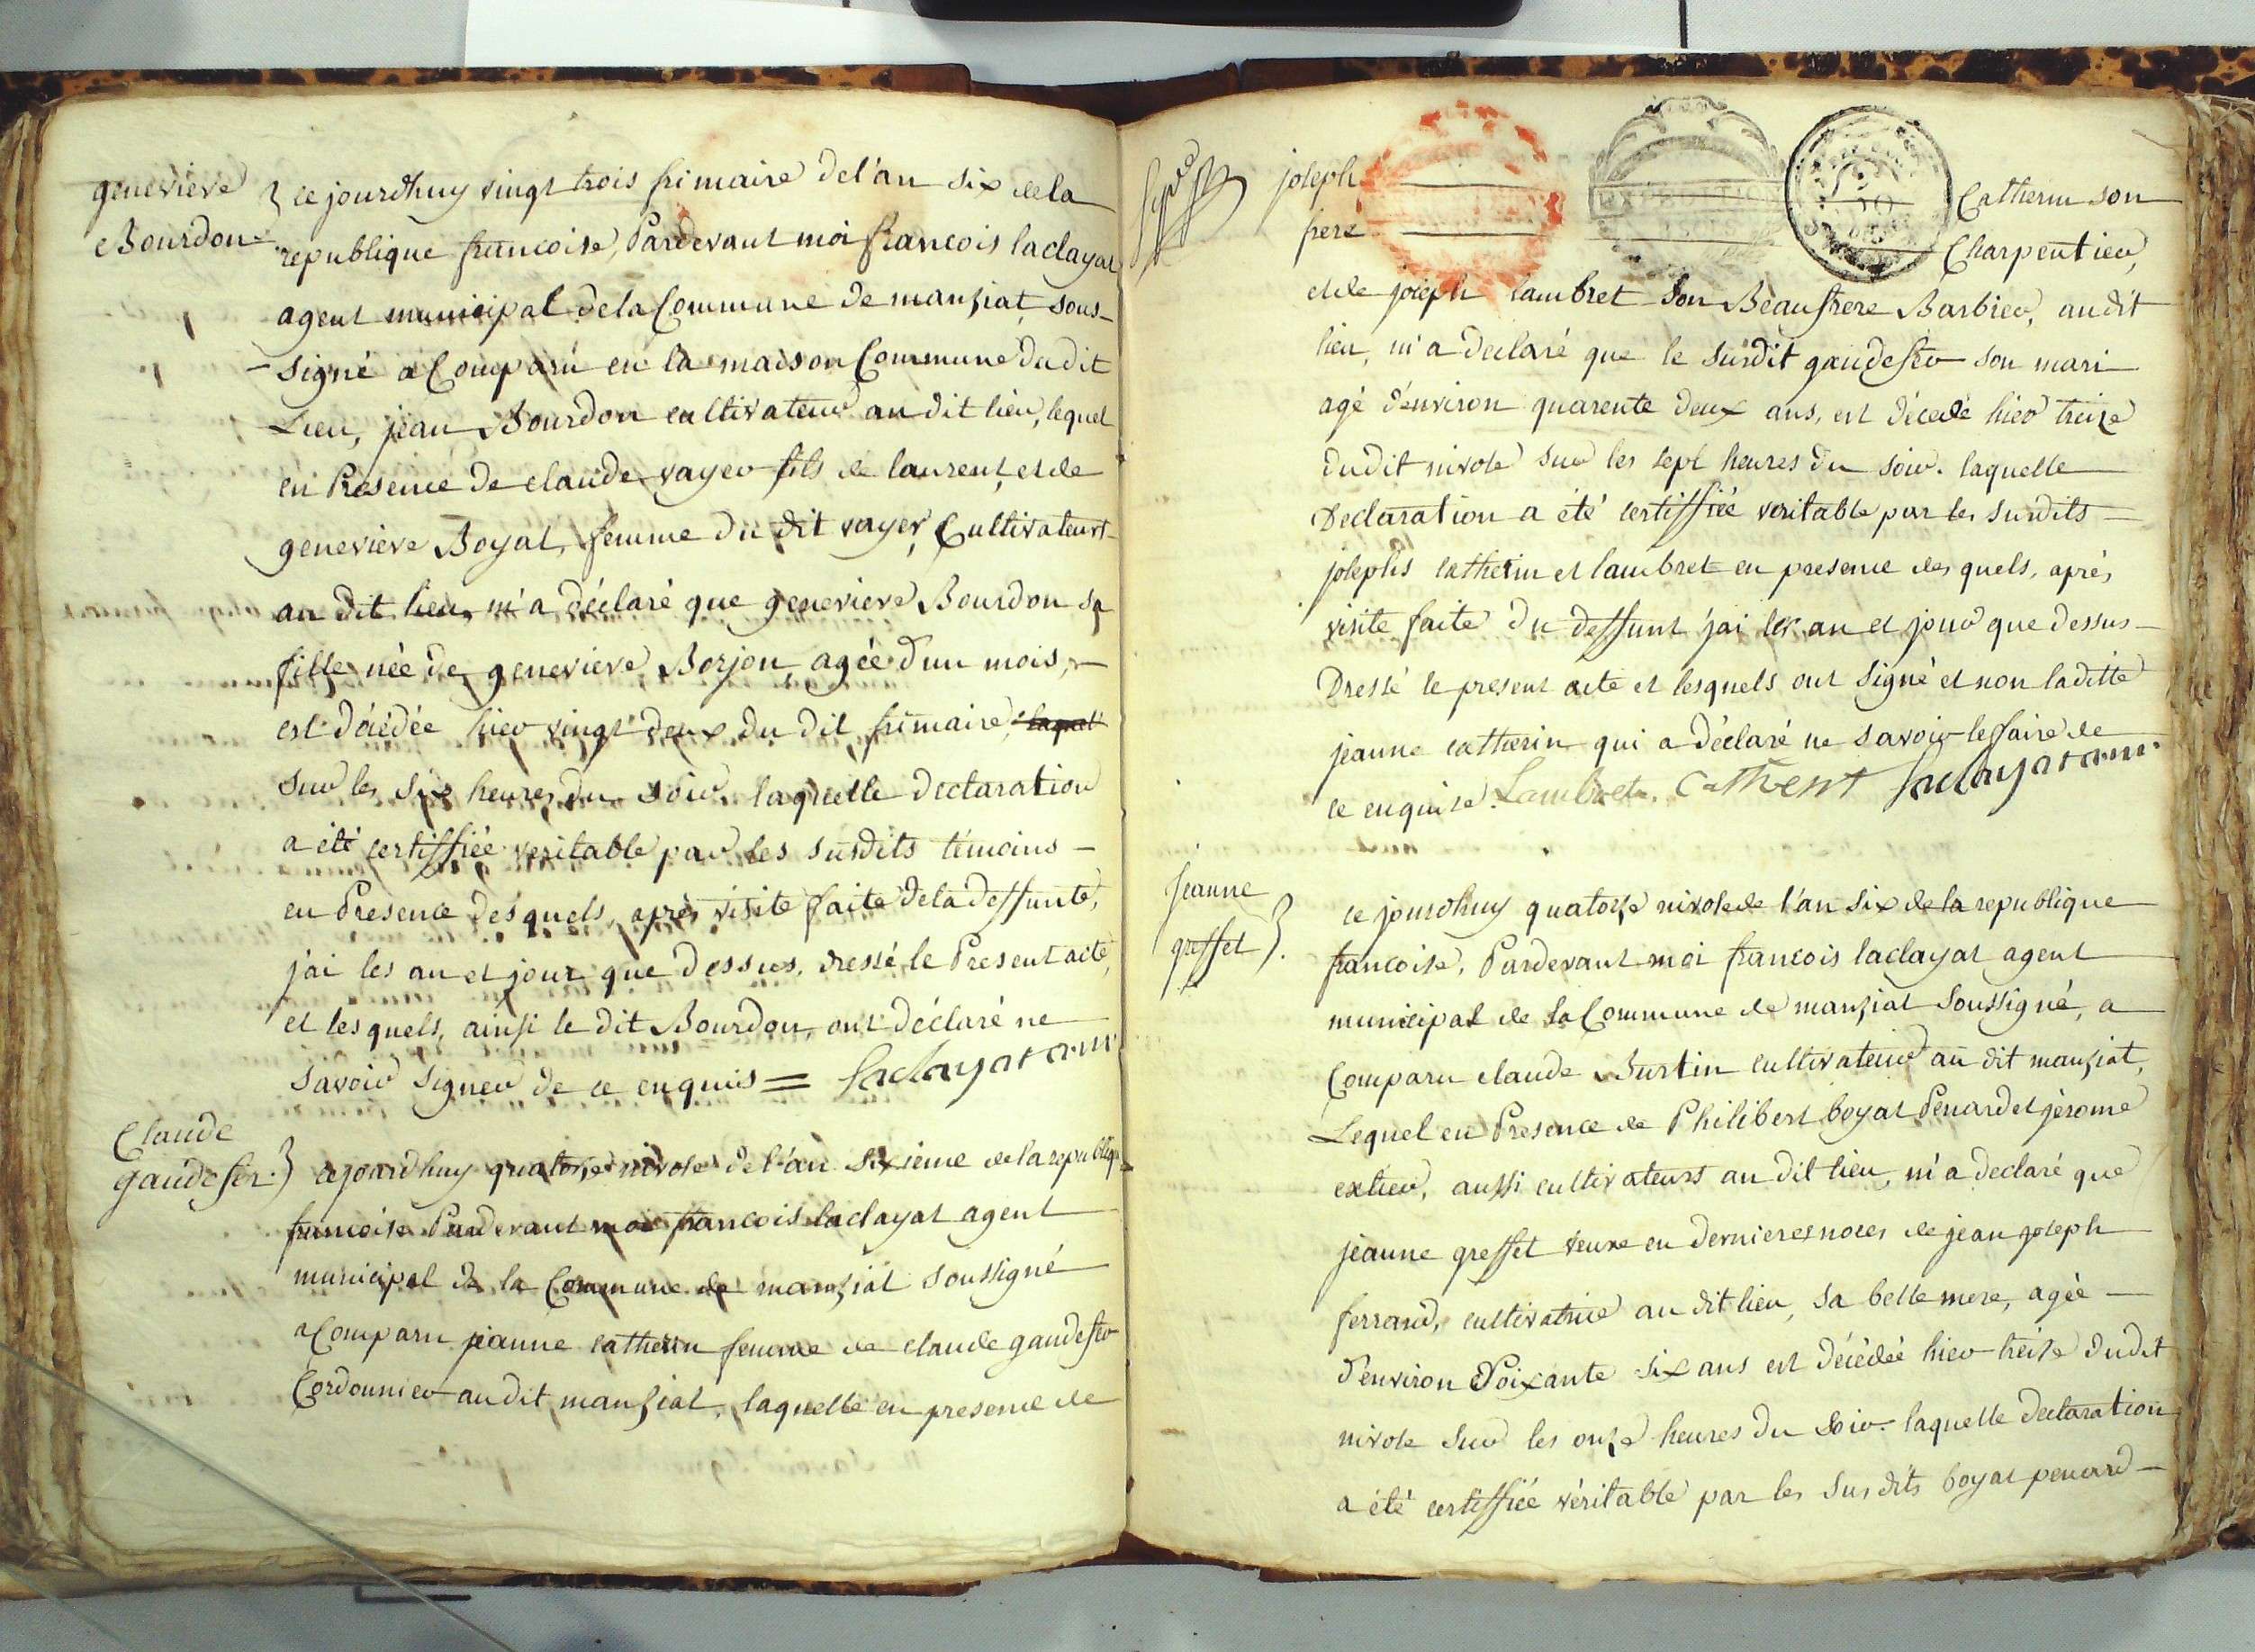 genevieve
Bourdon
ce jourdhuy vingt trois frimaire del'an six dela
republique francoise, Pardevant moi francois laclayat
agent municipal dela Commune de manziat sous-
signé a Comparu en la maison Commune dudit
Lieu, jean Bourdon cultivateur au dit lieu, lequel
en Presence de claude vayer fils de laurent, et de
genevieve Boyat, femme du dit vayer, Cultivateurs
au dit lieu, m'a déclaré que genevieve Bourdon sa
fille née de genevieve Borjon, agée d'un mois,
est décédée hier vingt deux du dit frimaire, laquel
sur les six heures du soir. laquelle declaration
a été certiffiée veritable par les susdits témoins
en Presence desquels, après visite faite dela deffunte,
j'ai les an et jour que dessus, dressé le Present acte,
et lesquels, ainsi le dit Bourdon, ont déclaré ne
savoir signer de ce enquis = laclayat a.m
Claude
gaudefer.
cejourdhuy quatorze nivose de l'an sixieme de la republiq
francoise Pardevant moi francois laclayat agent
municipal de la Commune de manziat soussigné
a Comparu jeanne catherin femme de claude gaudefer
Cordonnier audit manziat, laquelle en presence de
joseph Catherin son
frere Charpentier,
et de joseph lambret son Beaufrere Barbier, audit
lieu, m'a declaré que le susdit gaudefer son mari
agé d'environ quarente deux ans, est décedé hier treize
dudit nivose sur les sept heures du soir. laquelle
Declaration a été certiffiée veritable par les susdits
josephs catherin et lambret en presence des quels, après
visite faite du deffunt j'ai les an et jour que dessus
Dressé le present acte et lesquels ont signé et non laditte
jeanne catherin qui a déclaré ne savoir le faire de
ce enquise. Lambret. Catherin laclayat a.m
Jeanne
greffet
ce jourdhuy quatorze nivose de l'an six de la republique
francoise, Pardevant moi francois laclayat agent
municipal de la Commune de manziat soussigné, a
Comparu claude Burtin cultivateur au dit manziat,
Lequel en Presence de Philibert boyat Penard et jérome
extier, aussi cultivateurs au dit lieu, m'a declaré que
jeanne greffet veuve en dernieres noces de jean joseph
ferrand, cultivatrice au dit lieu, sa belle mere, agée
d'environ soixante six ans est décédée hier treize dudit
nivose sur les onze heures du soir. laquelle declaration
a été certiffiée véritable par les susdits boyat penard